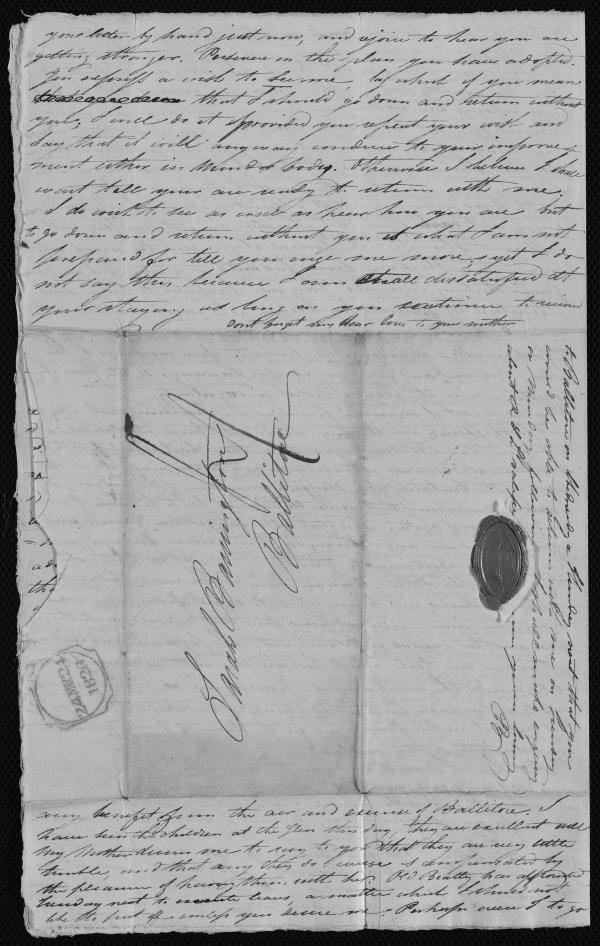 your letter by hand just now, and rejoice to hear you are
getting stronger. Persevere in the plan you have adopted.
You express a wish to see me, by which if you mean
that I should go down and return without
you; I will do it provided you repeat your wish and
say that it will anyway conduce to your improve=
ment either in mind or body. Otherwise I believe I shall
wait till you are ready to return with me.
I do wish to see as well as hear how you are but
to go down and return without you is what I am not
prepared for till you urge me more, yet I do
not say this because I am at all dissatisfied at
your staying as long as you continue to receive
dont forget my dear love to your mother
Sarah Barrington
Ballitore
24 MR 24
1824
to Ballitore on thursday next that you
would be able to return with me on Sunday
or Monday following I shall make enquiry
about
RB
any benefit from the air and exercise of Ballitore. I
have seen the children at the Glen this day, they are excellent well
My Mother desires me to say to you that they are very little
trouble, and that any they do cause is compensated by
the pleasure of having them with her. Old Beatty has appointed
Sunday next to leave, a matter which I should not
like the past of unless you desire me. Perhaps were I to go